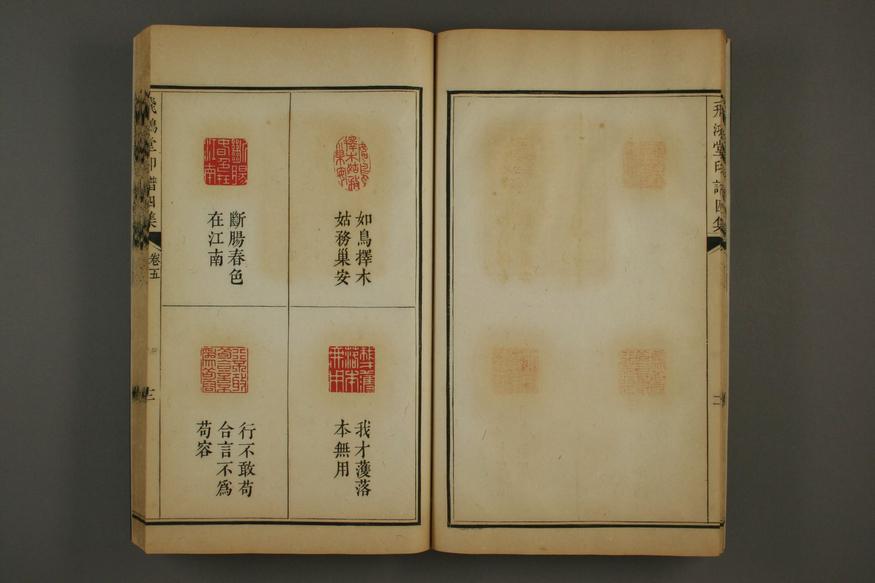 飛鴻堂印譜四集
如鳥擇木
姑務巢安
斷腸春色
在江南
我才濩落
本無用
行不敢苟
合言不爲
苟容
飛鴻堂印譜四集
卷五